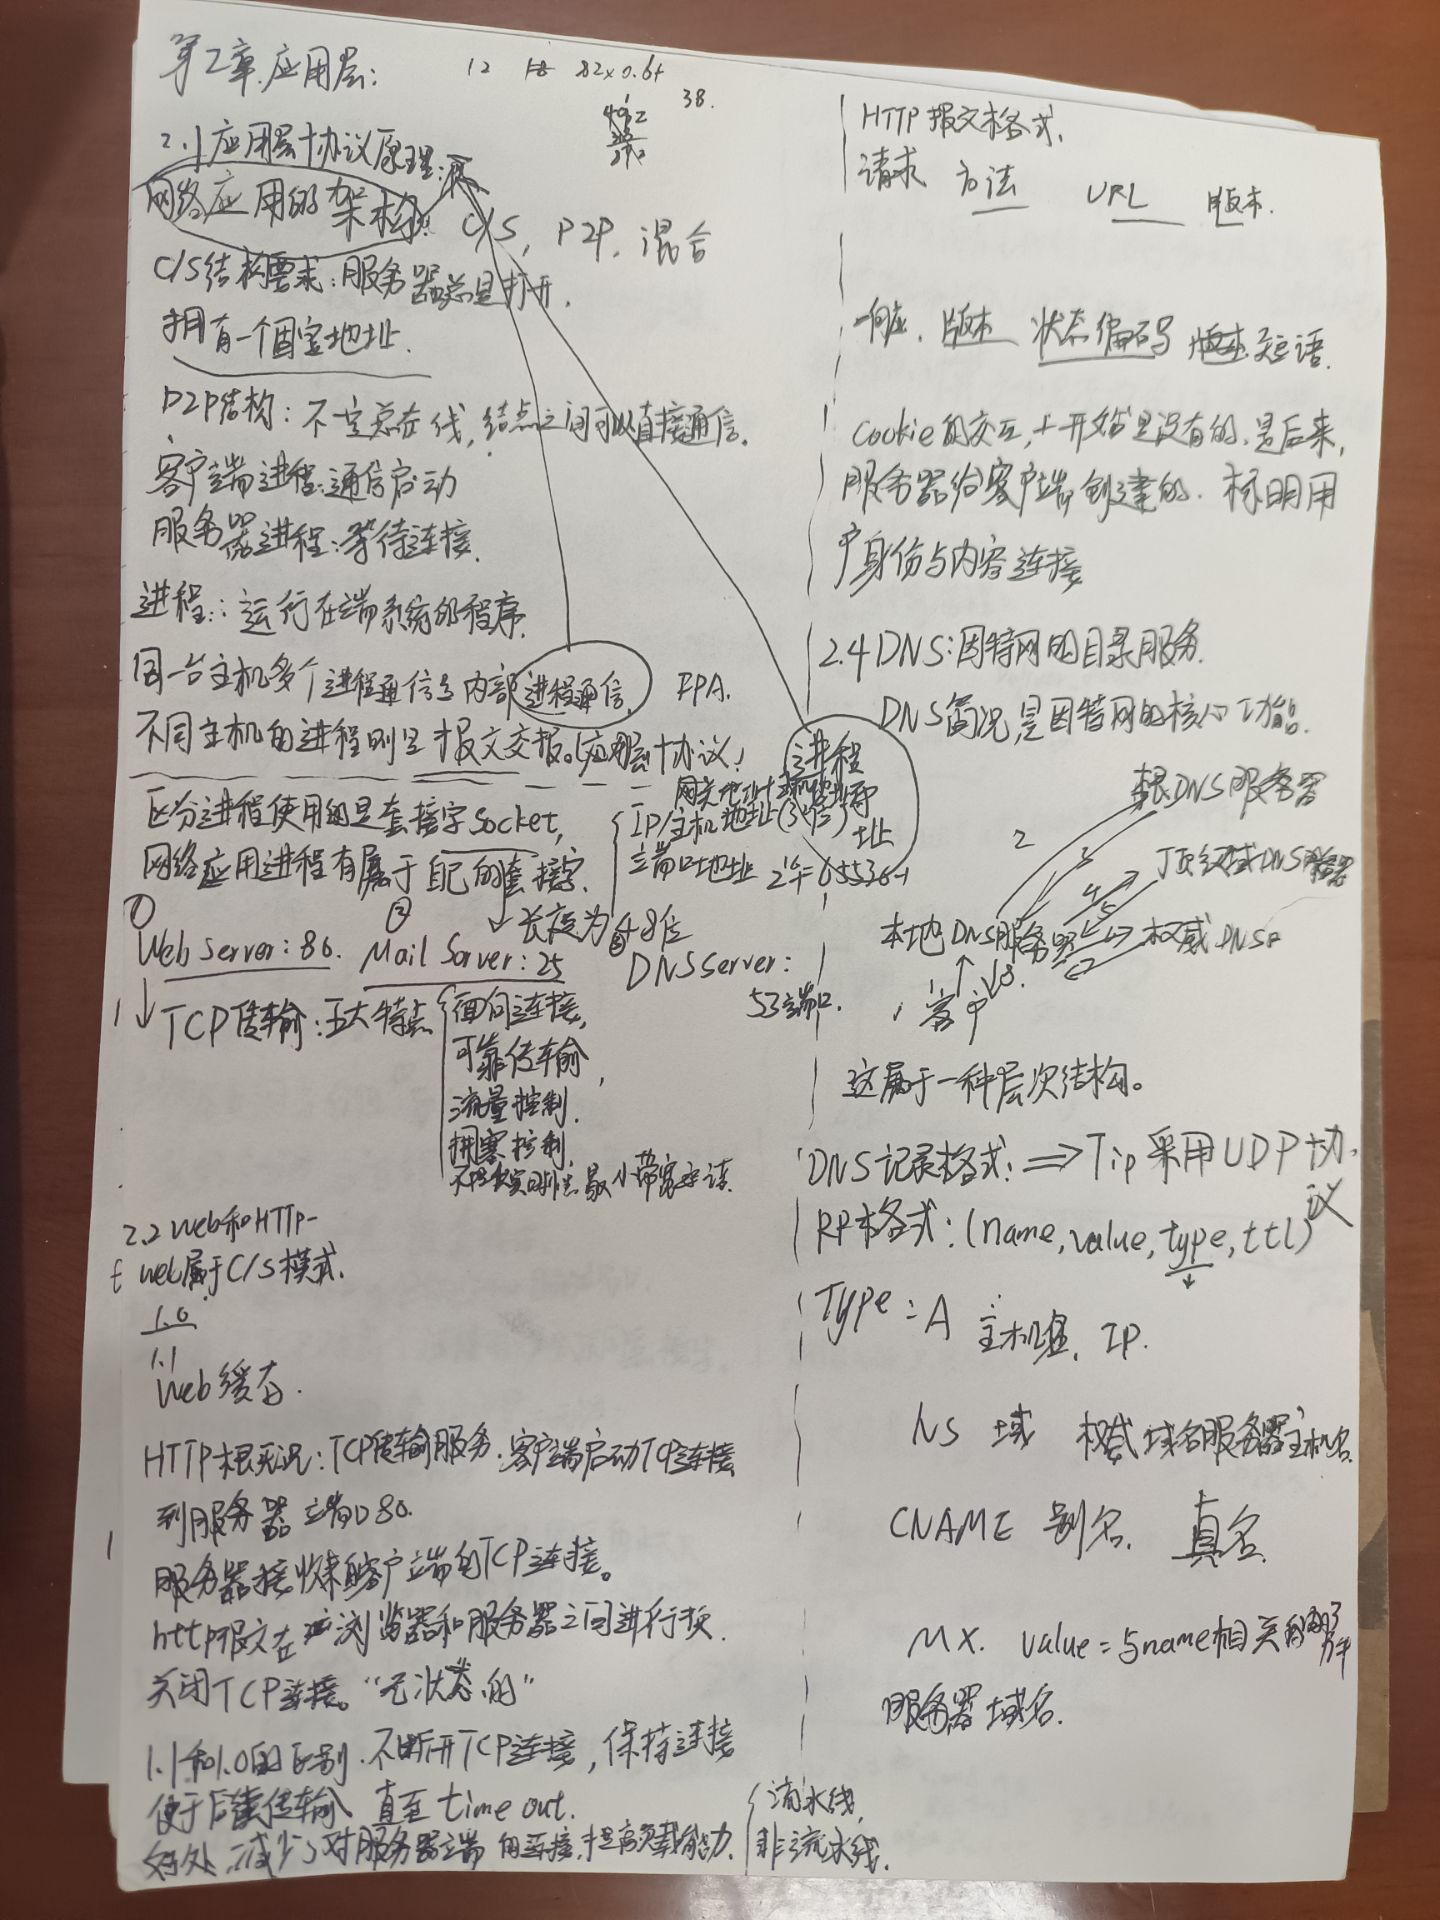 第2章.应用层:
12 18 82×0.6+
38.
2.1应用层协议原理:
网络应用的架构: C/S, P2P, 混合
C/S结构要求:服务器总是打开.
拥有一个固定地址.
P2P结构: 不一定总在线, 结点之间可以直接通信.
客户端进程:通信启动
服务器进程:等待连接.
进程: 运行在端系统的程序.
同一台主机多个进程通信是内部进程通信. IPA.
不同主机的进程则是报文交报。(应用层协议)
区分进程使用的是套接字Socket,
网络应用进程有属于自己的套接字.
进程
地址
IP/主机地址(32位)
端口地址 2个=65536-1
长度为48位
① Web Server:80. ② Mail Server:25 ③ DNS Server:
53端口.
TCP传输:五大特点
面向连接,
可靠传输,
流量控制.
拥塞控制,
最小带宽
2.2 Web和HTTP-
web属于C/S模式.
1.0
1.1
Web缓存.
HTTP概况: TCP传输服务.客户端启动TCP连接
到服务器 端口80.
服务器接收来自客户端的TCP连接。
http报文在浏览器和服务器之间进行交换.
关闭TCP连接。“无状态的”
1.1和1.0的区别.不断开TCP连接, 保持连接
便于后续传输 直至time out.
好处:减少了对服务器端的连接,提高负载能力.
流水线,
非流水线.
HTTP报文格式.
请求 方法 URL 版本.
响应. 版本 状态编码 短语.
Cookie的交互,开始是没有的.是后来,
服务器给客户端创建的. 标明用
户身份与内容连接
2.4 DNS:因特网的目录服务.
DNS简况,是因特网的核心功能.
根DNS服务器
2
3
顶级域DNS服务器
4
5
本地DNS服务器
权威DNS
1 8.
客户
这属于一种层次结构。
DNS记录格式: ⇒ Tip 采用UDP协
议
RR格式: (name, value, type, ttl)
Type = A 主机名. IP.
NS 域 权威域名服务器主机名.
CNAME 别名. 真名
MX. value=与name相关的邮件
服务器域名.